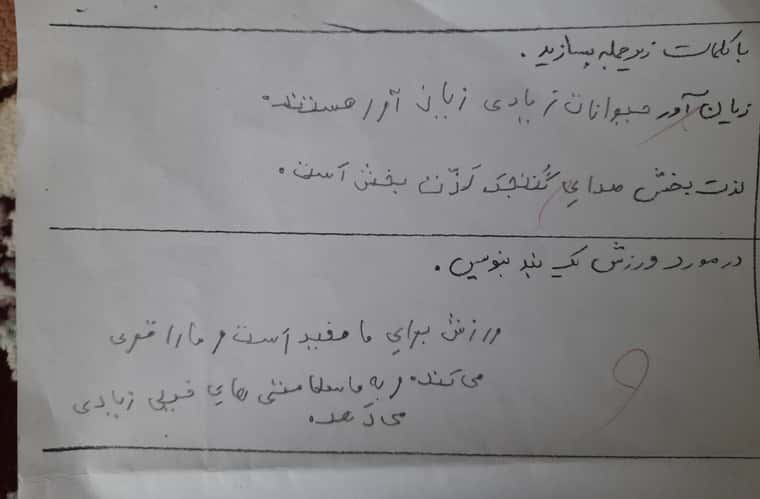 با کلمات زیر جمله بسازید.
زیان آور حیوانات زیادی زیان آور هستند.
لذت بخش صدای گنجشک لذّت بخش است.
در مورد ورزش یک بند بنویس.
ورزش برای ما مفید است و ما را قوی
می کند. و به ما سلامتی های خیلی زیادی
می دهد.